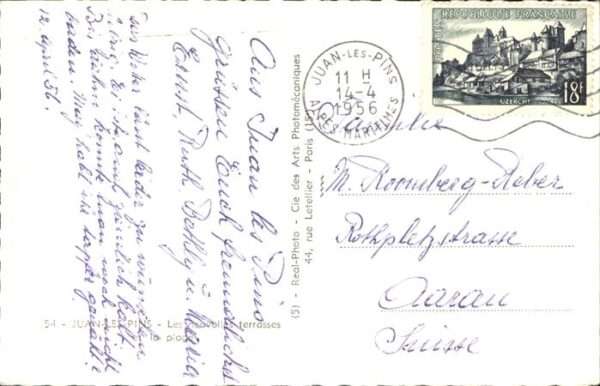 Aus Juan les Pins
grüssen Euch freundlichst
Ernst, Ruth, Bethly u. Maria
Das Wetter lässt leider zu wünschen
übrig. Es ist auch ziemlich kalt.
Bei kühn konnte man noch nicht
baden. Mueg habt ihr tapfer gewählt?
12. April 56.
54 - JUAN-LES-PINS - Les nouvelles terrasses
la plage
(5) - Real-Photo - Cie des Arts Photomécaniques
44, rue Letellier - Paris
JUAN-LES-PINS
11 H
14-4
1956
ALPES MARITIMES
REPUBLIQUE FRANÇAISE
POSTES
UZERCHE
18F
Familie
M. Roomberg-Reber
Rothpletzstrasse
Aarau
Suisse